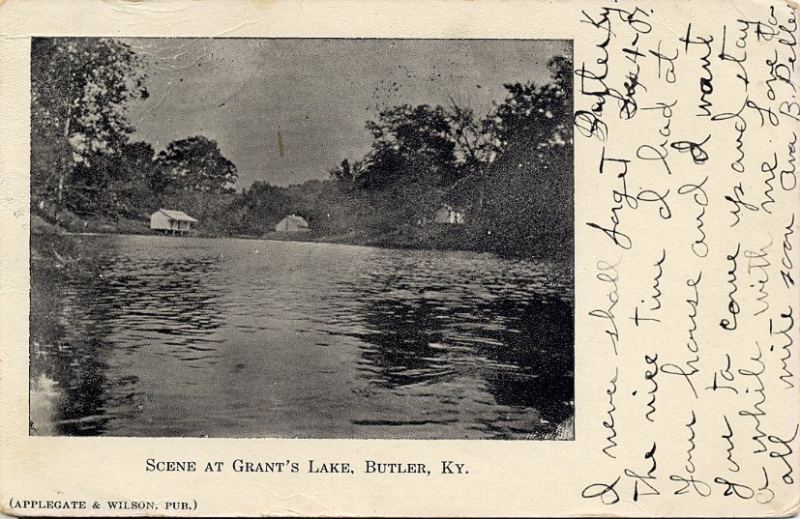 SCENE AT GRANT'S LAKE, BUTLER, KY.
(APPLEGATE & WILSON, PUB.)
Butler Ky.
I never shall forget
The nice time I had at
your house and I want
you to come up and stay
a while with me. Love to
all write soon Ava B.